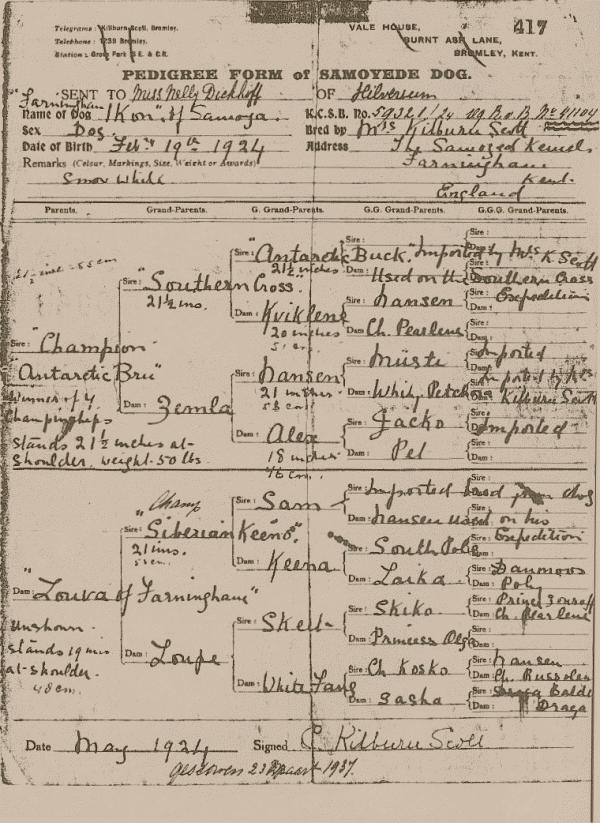 Telegrams: Kilburn Scott, Bromley.
Telephone: 1239 Bromley.
Station: Grove Park S.E. & C.R.
VALE HOUSE,
BURNT ASH LANE,
BROMLEY, KENT.
417
PEDIGREE FORM of SAMOYEDE DOG.
SENT TO Miss Nelly Dickhoff OF Hilversum
Name of Dog "Farningham "Kon" of Samoya.
K.C.S.B. No.
Sex Dog
Bred by Mrs Kilburn Scott
Date of Birth Feb 19th 1924
Address The Samoyed Kennels
Remarks (Colour, Markings, Size, Weight or Awards)
Farningham
Snow White
Kent.
England
Parents. Grand-Parents. G. Grand-Parents. G.G. Grand-Parents. G.G.G. Grand-Parents.
Sire: "Champion
Antarctic Bru"
Winner of 4
Championships
stands 21½ inches at
shoulder. weight 50 lbs
Sire: "Southern Cross.
21½ ins.
Dam: Zemla
Sire: "Antarctic Buck." Imported by Mrs K Scott
21½ inches
Used on the Southern Cross
Expedition
Dam: Kviklene
20 inches
51 cm.
Sire: Nansen
Dam: Ch. Pearlene
Sire: Nansen
21 inches
53 cm.
Sire: Musti Imported
Dam: White Petchora Imported by Mrs Kilburn Scott
Dam: Alex
18 inches
46 cm.
Sire: Jacko Imported
Dam: Pet
Dam: "Louva of Farningham"
Unshown.
stands 19 ins
at shoulder.
48 cm.
Sire: "Champ
Siberian Keeno".
21 ins.
53 cm.
Dam: Loupe
Sire: Sam
Sire: Imported bred from dog
Dam: Nansen used on his
Expedition
Dam: Keena
Sire: South Pole
Dam: Laika
Dam: Poly
Sire: Skeet
Sire: Skiko
Dam: Ch. Pearlene
Dam: Princess Olga
Sire: Nansen
Dam: Ch. Russolene
Dam: White Fang
Sire: Ch Kosko
Dam: Sasha
Dam: Draga
Date May 1924 Signed C. Kilburn Scott
1937.